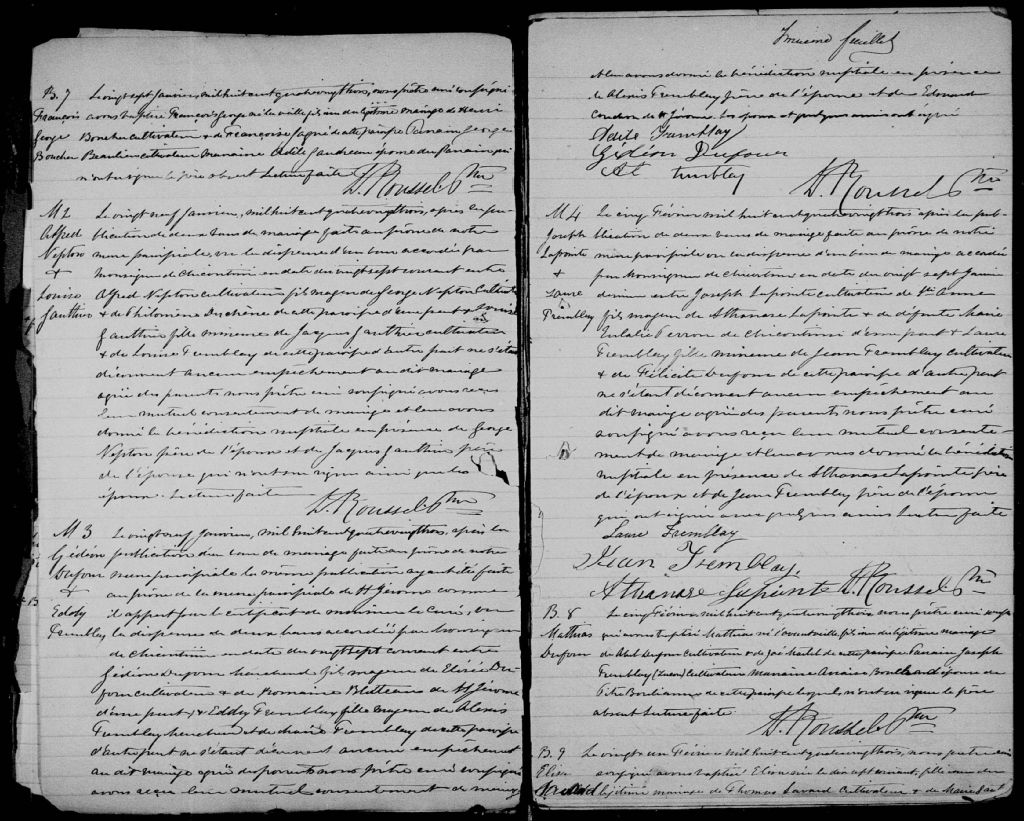 B. 7
François
George
Boucher
Le vingt sept Janvier, mil huit cent quatrevingt trois, nous prêtre curé soussigné
avons baptisé François George né la veille, fils du légitime mariage de Henri
Boucher cultivateur & de Françoise Gagné de cette paroisse Parrain George
Beaulieu cultivateur Marraine Adèle Gaudreau épouse du Parrain, qui
n'ont su signer le père absent Lecture faite
D. Roussel Ptre
M 2
Alfred
Nepton
&
Louise
Gauthier
Le vingt neuf Janvier, mil huit cent quatrevingt trois, après la pu-
blication de deux bans de mariage faits au prône de notre
messe paroissiale, vu la dispense d'un ban accordée par
Monseigneur de Chicoutimi en date du vingt sept courant entre
Alfred Nepton cultivateur, fils majeur de George Nepton Cultivateur
& de Philomène Duchêne de cette paroisse d'une part & Louise
Gauthier fille mineure de Jacques Gauthier cultivateur
& de Louise Tremblay de cette paroisse d'autre part ne s'étant
découvert aucun empêchement au dit mariage
agréé des parents nous prêtre curé soussigné avons reçu
leur mutuel consentement de mariage et leur avons
donné la bénédiction nuptiale en présence de George
Nepton père de l'époux et de Jacques Gauthier père
de l'épouse qui n'ont su signer ainsi que les
époux. Lecture faite
D. Roussel Ptre
M 3
Gédéon
Dufour
&
Eddy
Tremblay
Le vingt neuf Janvier, mil huit cent quatrevingt trois, après la
publication d'un ban de mariage faite au prône de notre
messe paroissiale la même publication ayant été faite
au prône de la messe paroissiale de St Jérôme comme
il appert par le certificat de monsieur le curé, vu
la dispense de deux bans accordée par Monseigneur
de Chicoutimi en date du vingt sept courant entre
Gédéon Dufour marchand fils majeur de Elisée Du-
four cultivateur & de Romaine Bilodeau de St Jérôme
d'une part, & Eddy Tremblay fille majeure de Alexis
Tremblay marchand et de Marie Tremblay de cette paroisse
d'autre part ne s'étant découvert aucun empêchement
au dit mariage agréé des parents nous prêtre curé soussigné
avons reçu leur mutuel consentement de mariage
Troisième feuillet
et leur avons donné la bénédiction nuptiale en présence
de Alexis Tremblay père de l'épouse et de Edouard
Coudron de St Jérôme. Les époux et quelques amis ont signé
Tremblay
Gédéon Dufour
Al tremblay
D. Roussel Ptre
M 4
Joseph
Lapointe
&
Laure
Tremblay
Le cinq Février mil huit cent quatrevingt trois après la pub-
lication de deux bans de mariage faite au prône de notre
messe paroissiale vu la dispense d'un ban de mariage accordée
par Monseigneur de Chicoutimi en date du vingt sept Janvier
dernier entre Joseph Lapointe cultivateur de Ste Anne
fils majeur de Athanase Lapointe & de défunte Marie
Eulalie Perron de Chicoutimi d'une part & Laure
Tremblay fille mineure de Jean Tremblay cultivateur
& de Félicité Dufour de cette paroisse d'autre part
ne s'étant découvert aucun empêchement au
dit mariage agréé des parents nous prêtre curé
soussigné avons reçu leur mutuel consente-
ment de mariage et leur avons donné la bénédiction
nuptiale en présence de Athanase Lapointe père
de l'époux et de Jean Tremblay père de l'épouse
qui ont signé avec quelques amis Lecture faite
Laure Tremblay
Jean Tremblay
Athanase Lapointe D. Roussel Ptre
B. 8
Mathias
Dufour
Le cinq Février mil huit cent quatrevingt trois nous prêtre curé soussi-
gné avons baptisé Mathias né l'avant veille fils du légitime mariage
de Abel Dufour Cultivateur & de Zoé Maltel de cette paroisse Parrain Joseph
Tremblay (Lucas) Cultivateur Marraine Anaïse Boulianne épouse de
Pitre Boulianne de cette paroisse lesquels n'ont su signer le père
absent Lecture faite
D. Roussel Ptre
B. 9
Elisa
Savard
Le vingt un Février mil huit cent quatrevingt trois, nous prêtre curé
soussigné avons baptisé Elisa née le dix sept courant, fille issue du
légitime mariage de Thomas Savard Cultivateur & de Marie